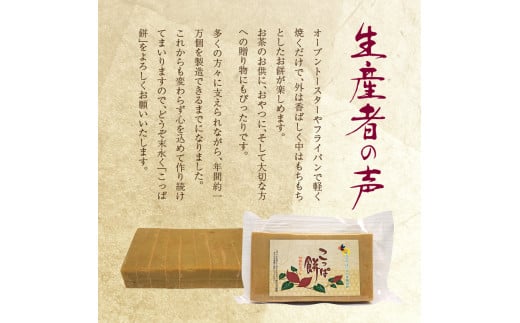 生産者の声
オーブントースターやフライパンで軽く
焼くだけで、外は香ばしく中はもちもち
としたお餅が楽しめます。
お茶のお供に、おやつに、そして大切な方
への贈り物にもぴったりです。
多くの方々に支えられながら、年間約一
万個を製造できるまでになりました。
これからも変わらず心を込めて作り続け
てまいりますので、どうぞ末永く「こっぱ
餅」をよろしくお願いいたします。
こっぱ
餅